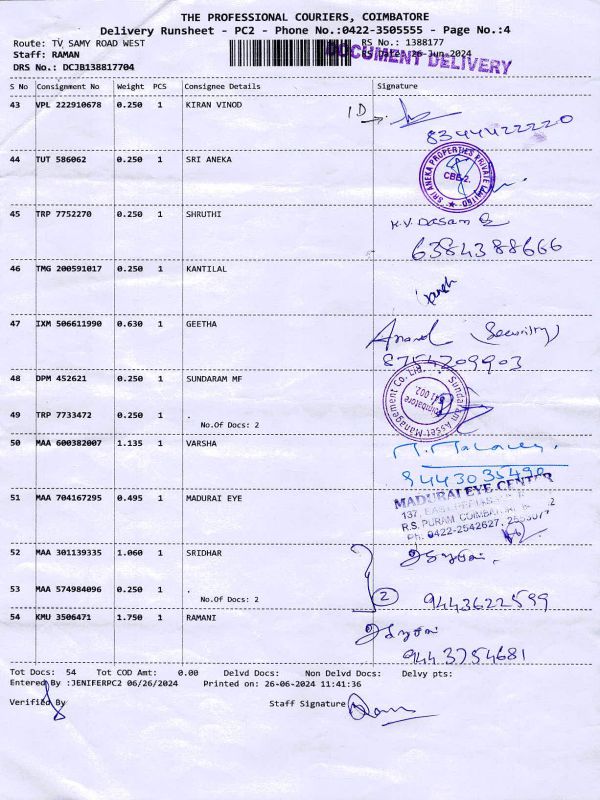 THE PROFESSIONAL COURIERS, COIMBATORE
Delivery Runsheet - PC2 - Phone No.:0422-3505555 - Page No.:4
Route: TV SAMY ROAD WEST RS No.: 1388177
Staff: RAMAN 26-Jun-2024
DOCUMENT DELIVERY
DRS No.: DCJB138817704
S No Consignment No Weight PCS Consignee Details Signature
43 VPL 222910678 0.250 1 KIRAN VINOD ID
8344422220
44 TUT 586062 0.250 1 SRI ANEKA
SRI ANEKA PROPERTIES PRIVATE LIMITED
CBE-2.
45 TRP 7752270 0.250 1 SHRUTHI
6384388666
46 TMG 200591017 0.250 1 KANTILAL
47 IXM 506611990 0.630 1 GEETHA Anand (Security)
8754209903
48 DPM 452621 0.250 1 SUNDARAM MF
Sundaram Asset Management Co. Ltd.
Coimbatore
641 002.
49 TRP 7733472 0.250 1 .
No.Of Docs: 2
50 MAA 600382007 1.135 1 VARSHA
9443035490
51 MAA 704167295 0.495 1 MADURAI EYE
MADURAI EYE CENTRE
137, EAST
R.S. PURAM COIMBATORE 2
Ph: 0422-2542627,
52 MAA 301139335 1.060 1 SRIDHAR
53 MAA 574984096 0.250 1 .
No.Of Docs: 2 2 9443622599
54 KMU 3506471 1.750 1 RAMANI
9443754681
Tot Docs: 54 Tot COD Amt: 0.00 Delvd Docs: Non Delvd Docs: Delvy pts:
Entered By :JENIFERPC2 06/26/2024 Printed on: 26-06-2024 11:41:36
Verified By Staff Signature